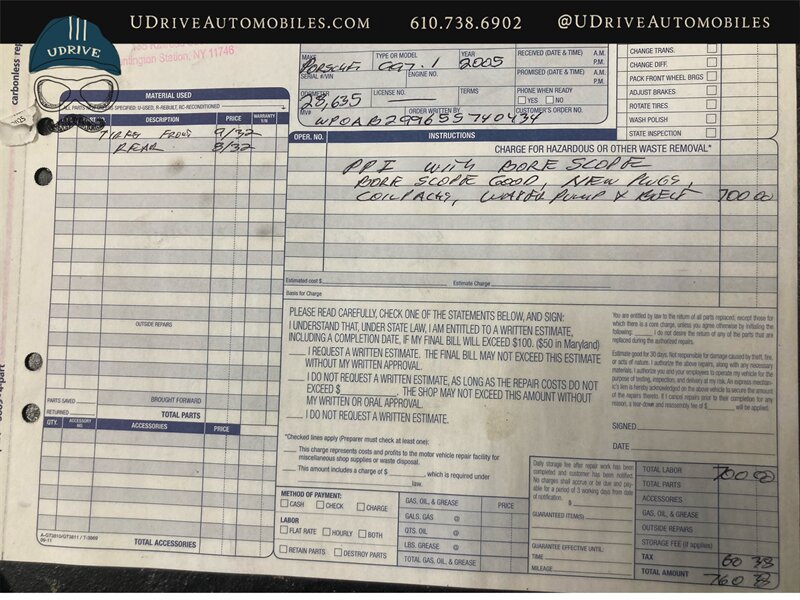 UDRIVEAUTOMOBILES.COM 610.738.6902 @UDRIVEAUTOMOBILES
UDRIVE
carbonless rep
Huntington Station, NY 11746
MAKE PORSCHE TYPE OR MODEL YEAR 2005
SERIAL #/VIN ENGINE NO.
ODOMETER 28,635 LICENSE NO. — TERMS
MV# ORDER WRITTEN BY CUSTOMER'S ORDER NO.
RECEIVED (DATE & TIME) A.M. P.M.
PROMISED (DATE & TIME) A.M. P.M.
PHONE WHEN READY
YES NO
CHANGE TRANS.
CHANGE DIFF.
PACK FRONT WHEEL BRGS
ADJUST BRAKES
ROTATE TIRES
WASH POLISH
STATE INSPECTION
MATERIAL USED
DESCRIPTION PRICE WARRANTY
TIRES FRONT 9/32
REAR 8/32
OUTSIDE REPAIRS
PARTS SAVED BROUGHT FORWARD
RETURNED TOTAL PARTS
QTY. ACCESSORY NO. ACCESSORIES PRICE
A-GT3810/GT3811 / T-3869
09-11
TOTAL ACCESSORIES
OPER. NO. INSTRUCTIONS
CHARGE FOR HAZARDOUS OR OTHER WASTE REMOVAL*
PPI WITH BORE SCOPE
BORE SCOPE GOOD, NEW PLUGS,
COILPACKS, WATER PUMP & BELT 700 00
Estimated cost $ Estimate Charge
Basis for Charge
PLEASE READ CAREFULLY, CHECK ONE OF THE STATEMENTS BELOW, AND SIGN:
I UNDERSTAND THAT, UNDER STATE LAW, I AM ENTITLED TO A WRITTEN ESTIMATE,
INCLUDING A COMPLETION DATE, IF MY FINAL BILL WILL EXCEED $100. ($50 in Maryland)
I REQUEST A WRITTEN ESTIMATE. THE FINAL BILL MAY NOT EXCEED THIS ESTIMATE
WITHOUT MY WRITTEN APPROVAL.
I DO NOT REQUEST A WRITTEN ESTIMATE, AS LONG AS THE REPAIR COSTS DO NOT
EXCEED $ . THE SHOP MAY NOT EXCEED THIS AMOUNT WITHOUT
MY WRITTEN OR ORAL APPROVAL.
I DO NOT REQUEST A WRITTEN ESTIMATE.
*Checked lines apply (Preparer must check at least one):
This charge represents costs and profits to the motor vehicle repair facility for
miscellaneous shop supplies or waste disposal.
This amount includes a charge of $ , which is required under
law.
You are entitled by law to the return of all parts replaced, except those
for which there is a core charge, unless you agree otherwise by initialing the
following: I do not desire the return of any of the parts that are
replaced during the authorized repairs.
Estimate good for 30 days. Not responsible for damage caused by theft, fire,
or acts of nature. I authorize the above repairs, along with any necessary
materials. I authorize you and your employees to operate my vehicle for the
purpose of testing, inspection, and delivery at my risk. An express mechan-
ic's lien is hereby acknowledged on the above vehicle to secure the amount
of the repairs thereto. If I cancel repairs prior to their completion for any
reason, a tear-down and reassembly fee of $ will be applied.
SIGNED
DATE
METHOD OF PAYMENT:
CASH CHECK CHARGE
LABOR
FLAT RATE HOURLY BOTH
RETAIN PARTS DESTROY PARTS
GAS, OIL, & GREASE PRICE
GALS. GAS @
QTS. OIL @
LBS. GREASE @
TOTAL GAS, OIL, & GREASE
Daily storage fee after repair work has been
completed and customer has been notified.
No charges shall accrue or be due and pay-
able for a period of 3 working days from date
of notification. $
GUARANTEED ITEM(S)
GUARANTEE EFFECTIVE UNTIL:
TIME
MILEAGE
TOTAL LABOR 700 00
TOTAL PARTS
ACCESSORIES
GAS, OIL, & GREASE
OUTSIDE REPAIRS
STORAGE FEE (if applies)
TAX 60 38
TOTAL AMOUNT 760 38